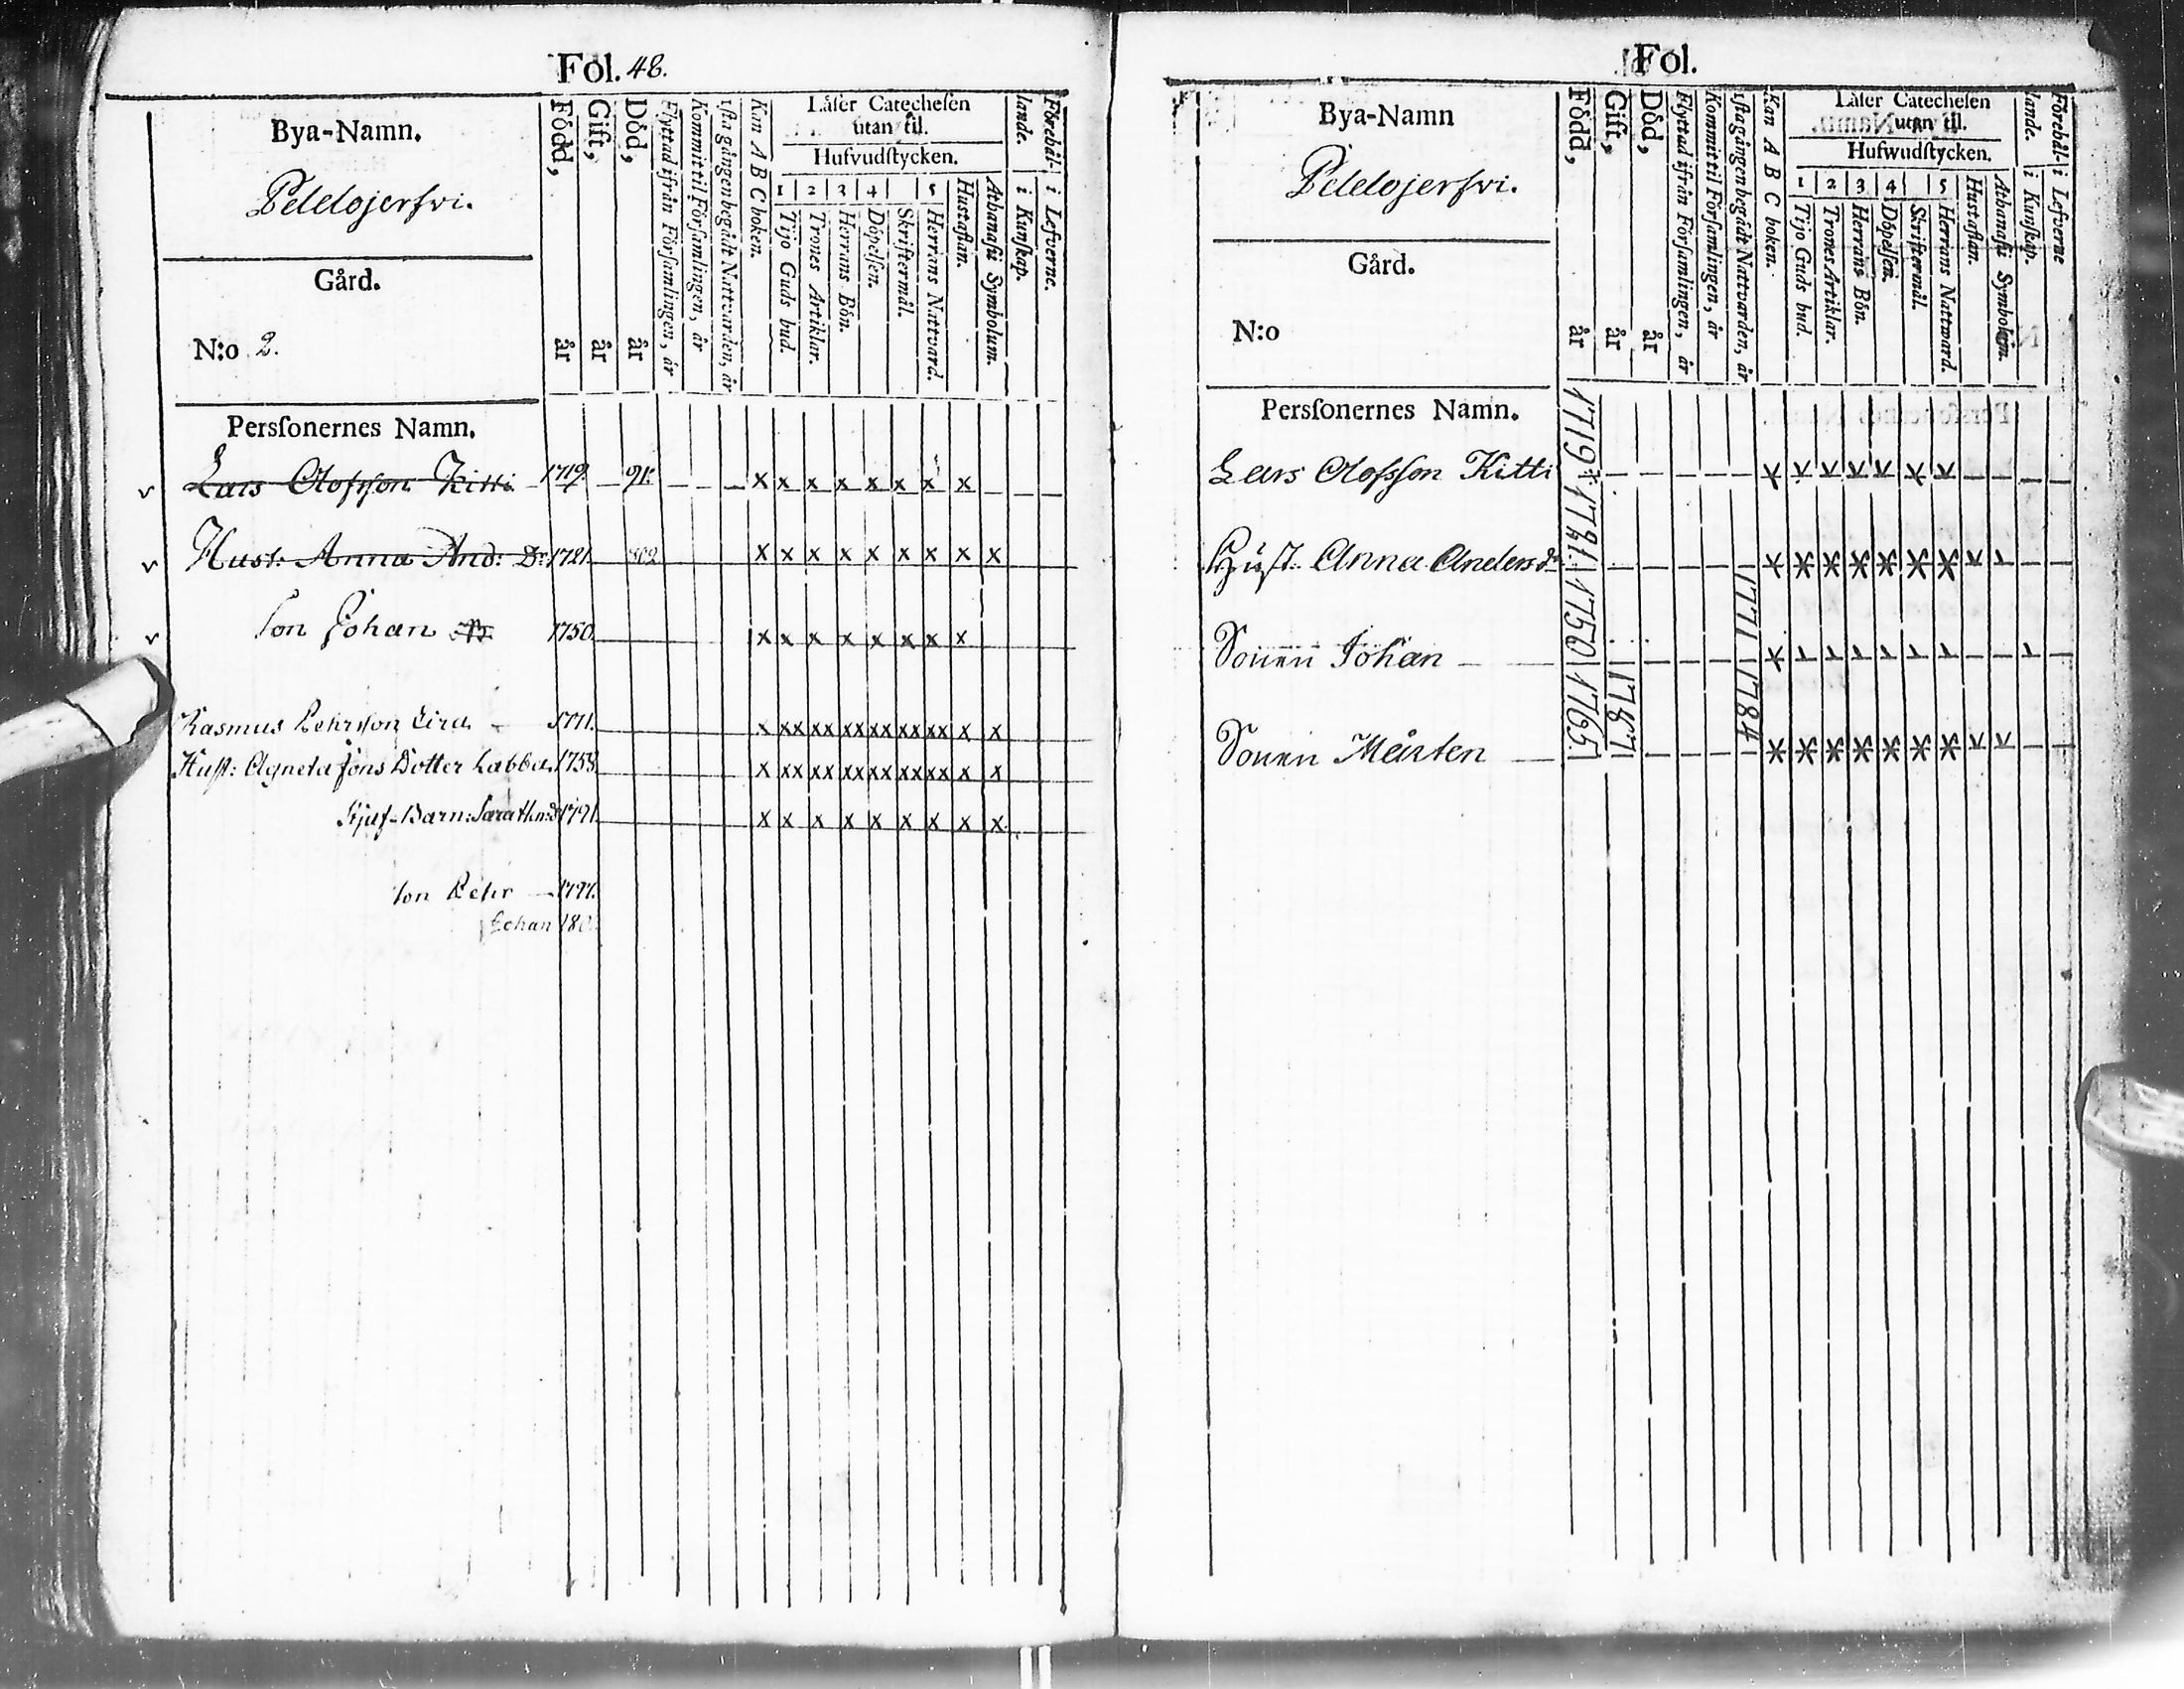 Fol. 48.
Bya-Namn.
Pelldojerfvi.
Gård.
N:o 2.
Född, år
Gift, år
Död, år
Flyttad ifrån Församlingen, år
Kommit til Församlingen, år
1sta gången begådt Nattvarden, år
Kan A B C boken.
Låser Catechesen
utan til.
Hufvudstycken.
1 2 3 4 5
Tijo Guds bud.
Trones Artiklar.
Herrans Bön.
Döpelsen.
Skriftermål.
Herrans Nattvard.
Hustaflan.
Athanasii Symbolum.
Förehållande.
i Kunskap.
i Lefverne.
Personernes Namn.
v Lars Olofsson Kitti 1719. 91. x x x x x x x x
v Hust: Anna And: Dr 1721. 802 x x x x x x x x x
v Son Johan 1750. x x x x x x x x
Rasmus Pehrsson Eira 1771. x xx xx xx xx xx xx x x
Hust: Agneta Jons Dotter Labba. 1758. x xx xx xx xx xx xx x x
Barn: Sara 1791. x x x x x x x x x
Son Pehr 1797.
Johan 180
Fol.
Bya-Namn
Pelldojerfvi.
Gård.
N:o
Född, år
Gift, år
Död, år
Flyttad ifrån Församlingen, år
Kommit til Församlingen, år
1sta gången begådt Nattvarden, år
Kan A B C boken.
Låser Catechesen
utan til.
Hufwudstycken.
1 2 3 4 5
Tijo Guds bud.
Trones Artiklar.
Herrans Bön.
Döpelsen.
Skriftermål.
Herrans Nattward.
Hustaflan.
Athanasii Symbolum.
Förehållande.
i Kunskap.
i Lefverne
Personernes Namn.
Lars Olofsson Kitti 1719
Hust. Anna Andersdr 1721.
Sonen Johan 1750 1771
Sonen Mårten 1765. 1787 1784